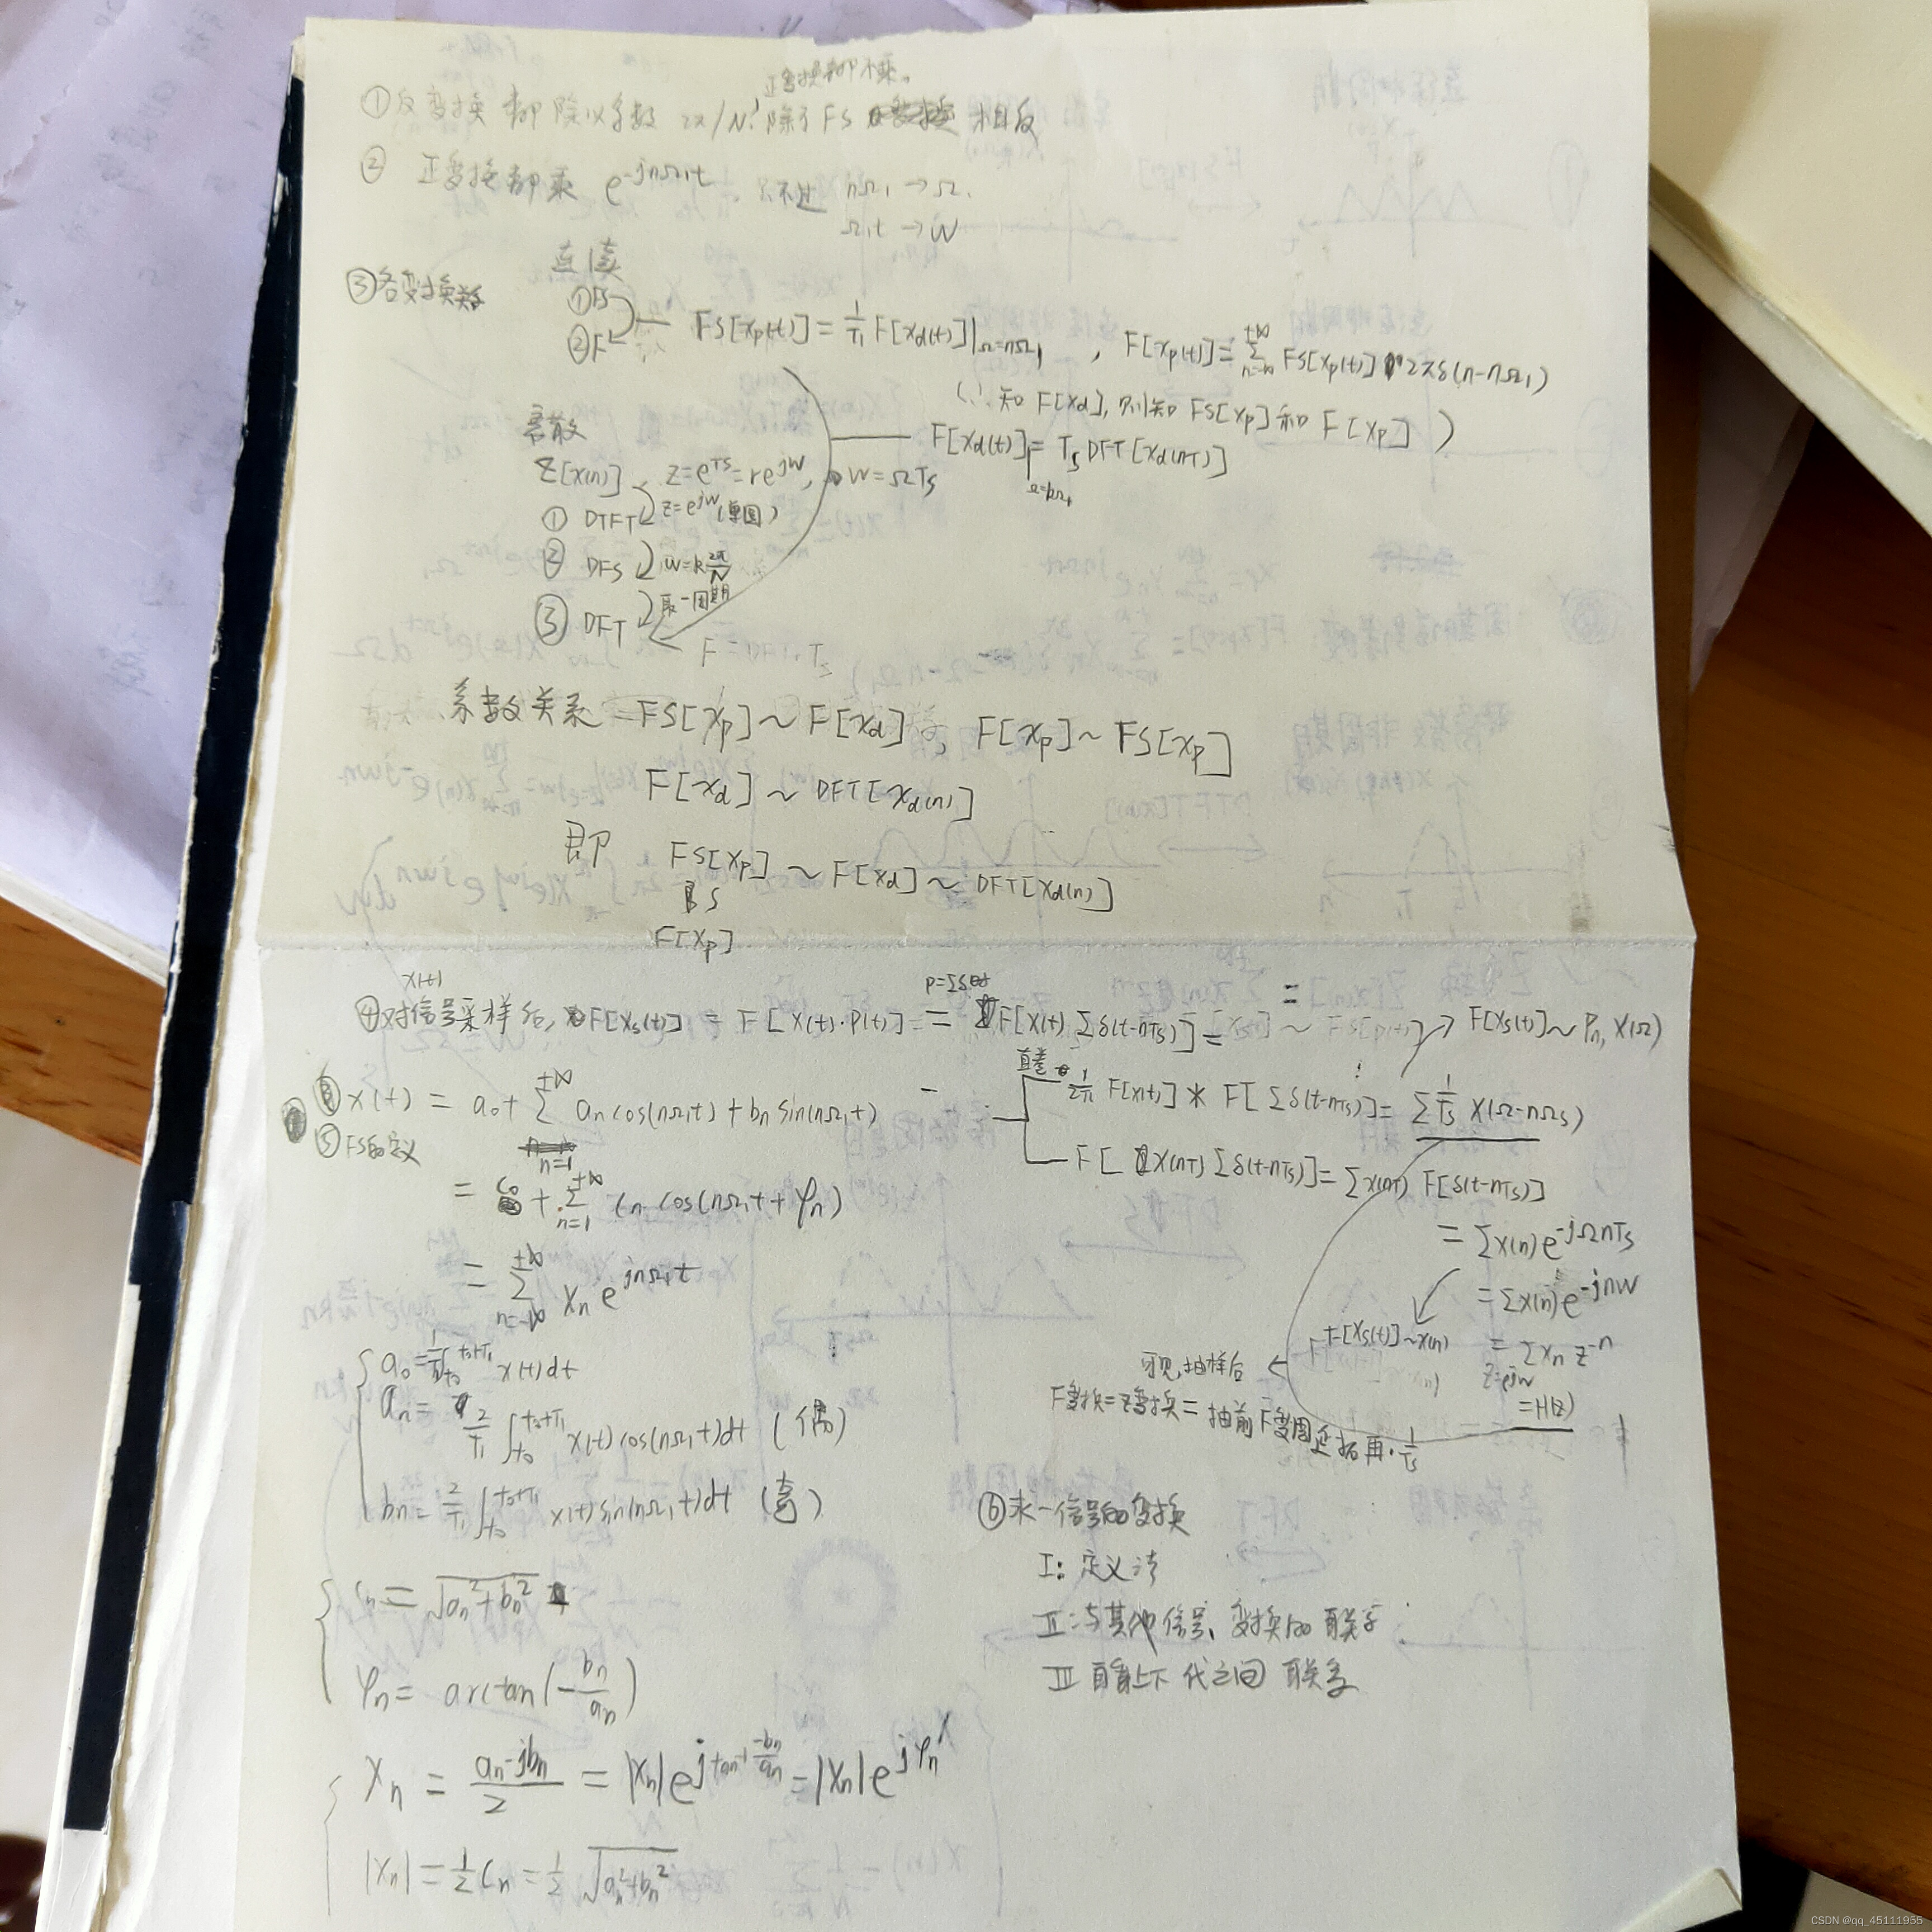 正变换都不乘。
①反变换都除以系数 2π/N! 除了FS 相反
② 正变换都乘 e^{-jnΩ₁t} 只不过 nΩ₁→Ω.
Ω₁t→W
③各变换关系
连续
①FS
②F
FS[x_p(t)] = 1/T₁ F[x_d(t)]|_{Ω=nΩ₁} , F[x_p(t)] = Σ_{n=-∞}^{+∞} FS[x_p(t)] 2πδ(n-nΩ₁)
(∴知 F[x_d], 则知 FS[x_p] 和 F[x_p] )
F[x_d(t)]|_{Ω=kΩ₁} = T_s DFT[x_d(nT)]
离散
Z[x(n)] z=e^{TS}=re^{jW}, W=ΩT_s
① DTFT z=e^{jW} (单圆)
② DFS W=k 2π/N
③ DFT 取一周期
F = DFT·T_s
系数关系 FS[x_p]~F[x_d], F[x_p]~FS[x_p]
F[x_d]~DFT[x_d(n)]
即 FS[x_p]~F[x_d]~DFT[x_d(n)]
S
F[x_p]
x(t)
④对信号采样后, F[x_s(t)] = F[x(t)·p(t)] = F[x(t)Σδ(t-nT_s)] =
p=Σδ
F[x_s(t)]~P_n, X(Ω)
直卷 1/2π F[x(t)] * F[Σδ(t-nT_s)] = Σ 1/T_s X(Ω-nΩ_s)
F[ x(nT) Σδ(t-nT_s)] = Σx(nT) F[δ(t-nT_s)]
= Σx(n)e^{-jΩnT_s}
= Σx(n)e^{-jnW}
= Σx_n z^{-n}
z=e^{jW}
=H(z)
F[x_s(t)]~x(n)
可见,抽样后
F变换=z变换=抽前F变周延拓再·1/T_s
x(t) = a₀+ Σ_{n=1}^{+∞} a_n cos(nΩ₁t) + b_n sin(nΩ₁t)
⑤FS的定义
= c₀ + Σ_{n=1}^{+∞} c_n cos(nΩ₁t+φ_n)
= Σ_{n=-∞}^{+∞} x_n e^{jnΩ₁t}
a₀ = 1/T₁ ∫_{t₀}^{t₀+T₁} x(t)dt
a_n = 2/T₁ ∫_{t₀}^{t₀+T₁} x(t)cos(nΩ₁t)dt (偶)
b_n = 2/T₁ ∫_{t₀}^{t₀+T₁} x(t)sin(nΩ₁t)dt (奇)
c_n = √(a_n²+b_n²)
φ_n = arctan(-b_n/a_n)
X_n = (a_n-jb_n)/2 = |X_n|e^{j tan⁻¹ -b_n/a_n} = |X_n|e^{jφ_n}
|X_n| = 1/2 C_n = 1/2 √(a_n²+b_n²)
⑥求一信号的变换
I: 定义法
II: 与其他信号、变换的联系
III 自身上下代之间联系
CSDN @qq_45111955